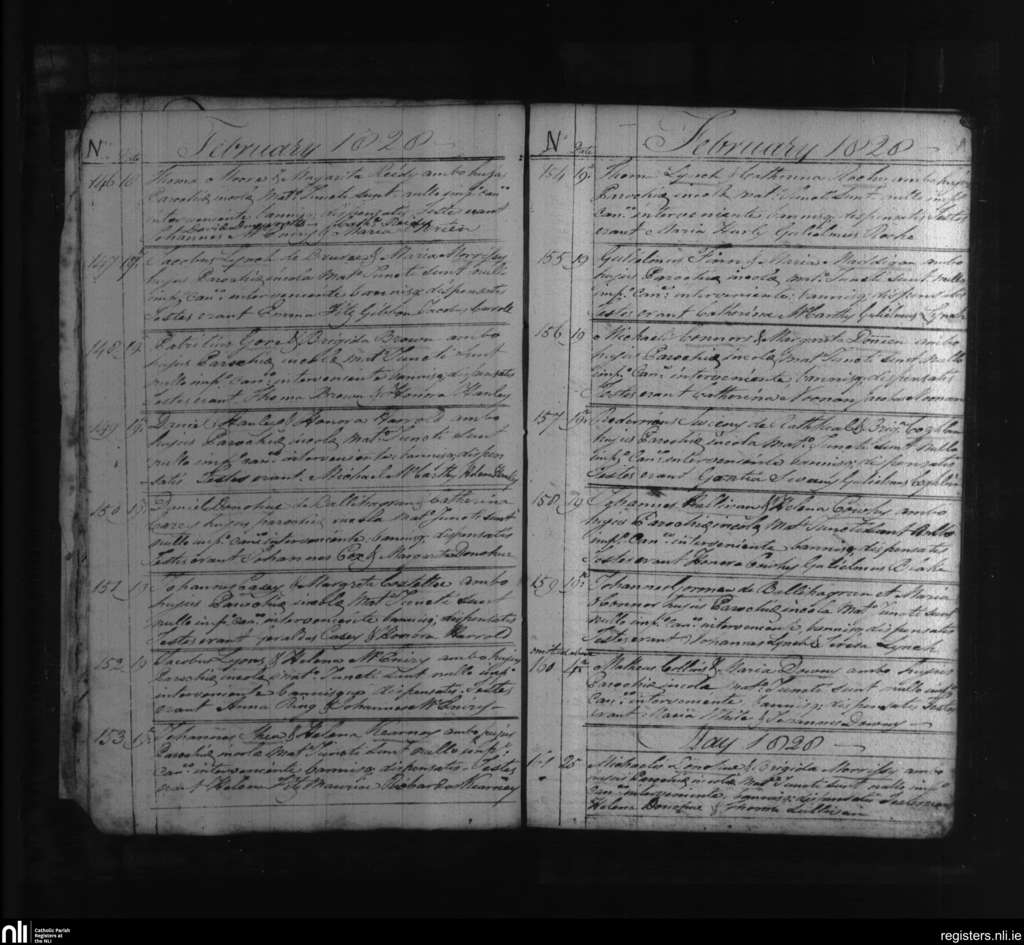 No Date February 1828
146 18 Thoma Moore & Margarita Leedy ambo hujus
Parochiæ incolæ Mato Juncti sunt nullo impo cano
interveniente bannisq dispensatis Testes erant
Johannes Maria Brien
147 19 Jacobus Lynch de Bruree & Maria Morrissy
hujus Parochiæ incola Mato Juncti sunt nullo
impo Cano interveniente bannisq dispensatis
Testes erant Emma Fitz Gibbon Jacobus Carroll
148 Patritius Gore & Brigida Brown ambo
hujus Parochiæ incolæ Mato Juncti sunt
nullo impo cano interveniente bannisq dispensatis
Testes erant Thoma Brown & Honora Hanley
149 Denis Hanley & Honora Harrold ambo
hujus Parochiæ incolæ Mato Juncti sunt
nullo impo cano interveniente bannisq dispen
satis Testes erant Michael McCarthy Helena Hanley
150 Daniel Donohue de Ballihagran & Catherina
Carey hujus parochiæ incola Mato Juncti sunt
nullo impo cano interveniente bannisq dispensatis
Testes erant Johannes Cox & Margarita Donohue
151 Johannes Casey & Margarita Costelloe ambo
hujus Parochiæ incolæ Mato Juncti sunt
nullo impo cano interveniente bannisq dispensatis
Testes erant Geraldus Casey & Honora Harrold
152 Jacobus Lyons & Helena McEniry ambo hujus
Parochiæ incolæ Mato Juncti sunt nullo impo
interveniente bannisque dispensatis Testes
erant Anna Ring & Johannes McEniry
153 Johannes Shea & Helena Kearney ambo hujus
Parochiæ incolæ Mato Juncti sunt nullo impo
Cano interveniente bannisq dispensatis Testes
erant Helena Fitz Maurice Richardus Kearney
No Date February 1828
154 19 Thom Lynch & Catherina Roche ambo hujus
Parochiæ incolæ Mato Juncti sunt nullo impo
Cano interveniente bannisq dispensatis Testes
erant Maria Hurly Gulielmus Roche
155 19 Gulielmus Finn & Maria Maddigan ambo
hujus Parochiæ incolæ Mato Juncti sunt nullo
impo Cano interveniente bannisq dispensatis
Testes erant Catherina McCarthy Gulielmus Lynch
156 19 Michael Connors & Margarita ambo
hujus Parochiæ incolæ Mato Juncti sunt nullo
impo Cano interveniente bannisq dispensatis
Testes erant Catherina Noonan Jacobus Noonan
157 19 Sweeny de Rathkeal & Coghlan
hujus Parochiæ incola Mato Juncti sunt nullo
impo Cano interveniente bannisq dispensatis
Testes erant Sweeny Gulielmus Coghlan
158 19 Johannes Sullivan & Helena ambo
hujus Parochiæ incolæ Mato Juncti sunt nullo
impo Cano interveniente bannisq dispensatis
Testes erant Honora Gulielmus
159 Johannes Gorman de Ballihagran et Maria
Connor hujus Parochiæ incola Mato Juncti sunt
nullo impo Cano interveniente bannisq dispensatis
Testes erant Johannes Lynch & Teresa Lynch
omitted above
160 4 Matheus Collins & Maria Downy ambo hujus
Parochiæ incolæ Mato Juncti sunt nullo impo
Cano interveniente bannisq dispensatis Testes
erant Maria White & Downy
May 1828
161 25 Michaelis Donohue & Brigida Morrissy ambo
hujus Parochiæ incolæ Mato Juncti sunt nullo impo
Cano interveniente bannisq dispensatis Testes erant
Helena Donohue & Thoma Sullivan
nli Catholic Parish
Registers at
the NLI
registers.nli.ie